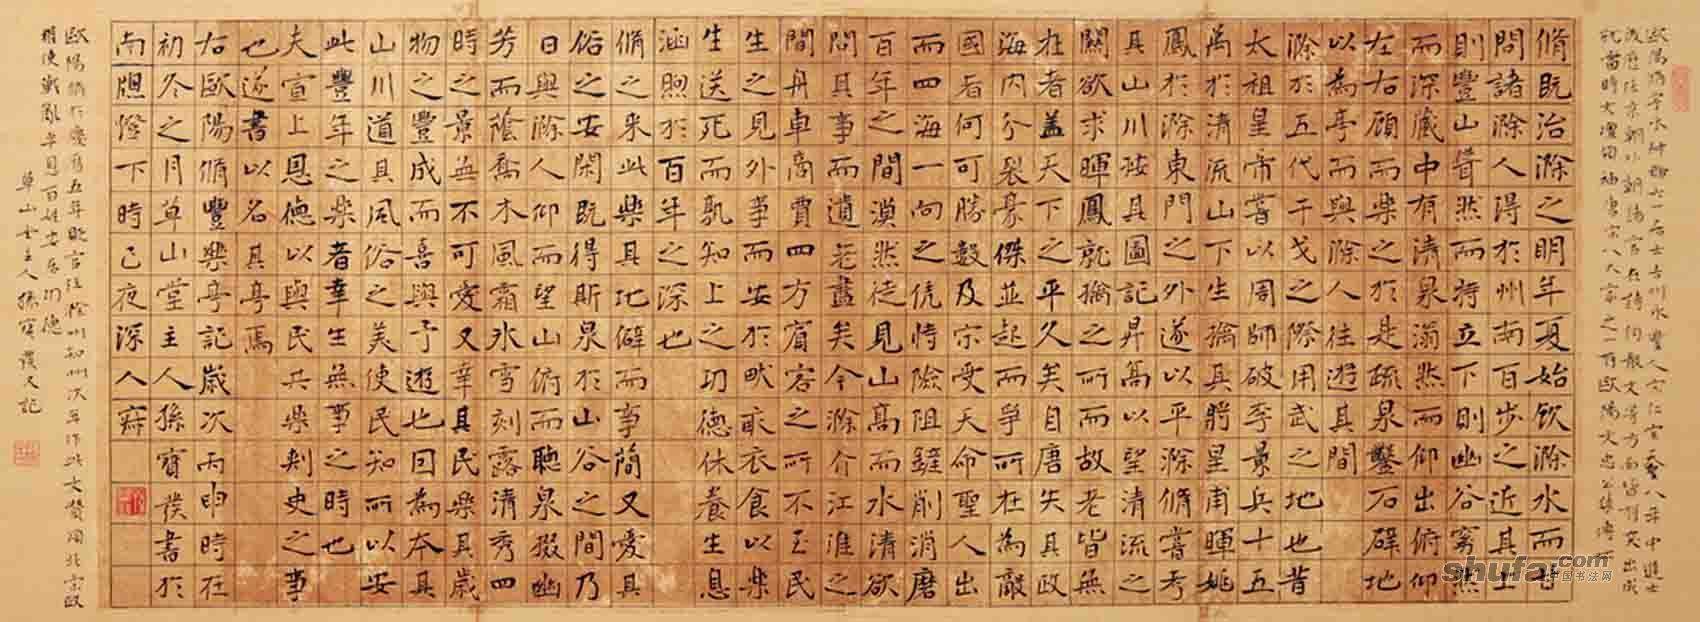 歐陽脩字永叔號六一居士吉州永豐人宋仁宗天聖八年中進士
歷任京朝外朝諸官在詩詞散文等方面皆有突出成
就當時文壇領袖唐宋八大家之一有歐陽文忠公集傳世
脩既治滁之明年夏始飲滁水而甘
問諸滁人得於州南百步之近其上
則豐山聳然而特立下則幽谷窈然
而深藏中有清泉滃然而仰出俯仰
左右顧而樂之於是疏泉鑿石辟地
以為亭而與滁人往遊其間
滁於五代干戈之際用武之地也昔
太祖皇帝嘗以周師破李景兵十五
萬於清流山下生擒其將皇甫暉姚
鳳於滁東門之外遂以平滁脩嘗考
其山川按其圖記升高以望清流之
關欲求暉鳳就擒之所而故老皆無
在者蓋天下之平久矣自唐失其政
海內分裂豪傑並起而爭所在為敵
國者何可勝數及宋受天命聖人出
而四海一向之凭恃險阻鏟削消磨
百年之間漠然徒見山高而水清欲
問其事而遺老盡矣今滁介江淮之
間舟車商賈四方賓客之所不至民
生之見外事而安於畎畝衣食以樂
生送死而孰知上之功德休養生息
涵煦於百年之深也
脩之來此樂其地僻而事簡又愛其
俗之安閑既得斯泉於山谷之間乃
日與滁人仰而望山俯而聽泉掇幽
芳而蔭喬木風霜冰雪刻露清秀四
時之景無不可愛又幸其民樂其歲
物之豐成而喜與予遊也因為本其
山川道其風俗之美使民知所以安
此豐年之樂者幸生無事之時也
夫宣上恩德以與民共樂刺史之事
也遂書以名其亭焉
右歐陽脩豐樂亭記歲次丙申時在
初冬之月草山堂主人孫寶璞書於
南牕燈下時已夜深人寂
歐陽脩於慶曆五年貶官任滁州知州次年作此文贊頌北宋政
權使戰亂平息百姓安居
草山堂主人孫寶璞又記
shufa.com
中国书法网